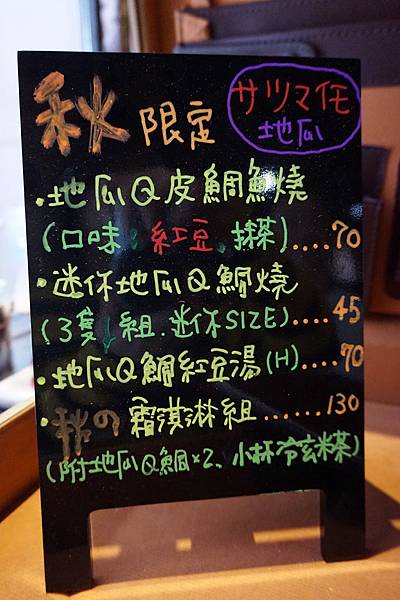 秋 限定 サツマイモ
地瓜
・地瓜Q皮鯛魚燒
(口味:紅豆.抹茶)....70
・迷你地瓜Q鯛燒
(3隻1組.迷你SIZE)....45
・地瓜Q鯛紅豆湯(H)....70
・秋の霜淇淋組......130
(附地瓜Q鯛×2、小杯冷玄米茶)